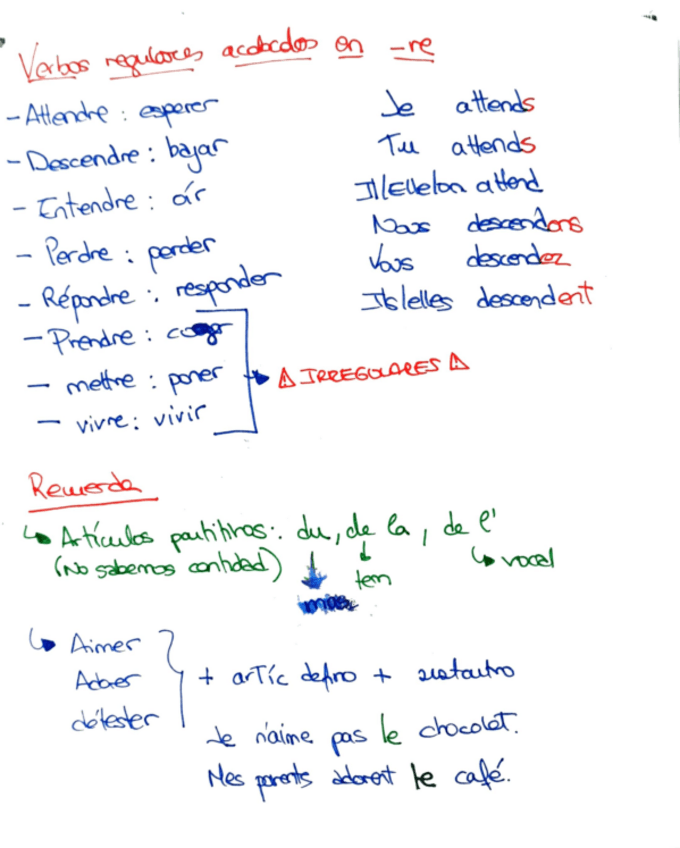 Verbos regulares acabados en -re
- Attendre : esperer
- Descendre : bajar
- Entendre : oír
- Perdre : perder
- Répondre : responder
- Prendre : coger
- mettre : poner
- vivre : vivir
⚠ IRREGULARES ⚠
Je attends
Tu attends
Il/Elle/on attend
Nous descendons
Vous descendez
Ils/elles descendent
Recuerda
↳ Artículos partitivos: du, de la, de l'
(No sabemos cantidad) ↓ ↓ ↳ vocal
fem
masc
↳ Aimer
Adorer
détester
+ artíc defino + sustantivo
Je n'aime pas le chocolat.
Mes parents adorent le café.